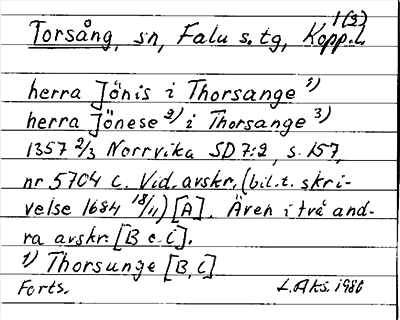 1(3)
Torsång, sn, Falu s. tg, Kopp.l.
herra Jönis i Thorsange 1)
herra Jönese 2) i Thorsange 3)
1357 2/3 Norrvika SD 7:2, s. 157,
nr 5704 c. Vid. avskr. (bil. t. skri-
velse 1684 18/11) [A]. Även i två and-
ra avskr. [B o. C].
1) Thorsunge [B, C]
Forts. L. Aks. 1986